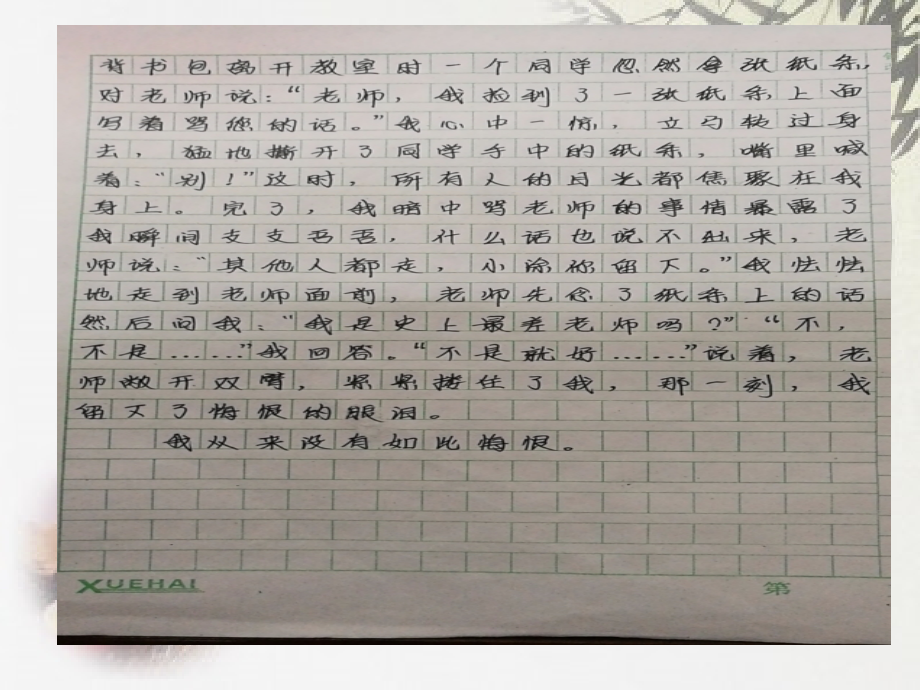 背书包离开教室时一个同学忽然拿张纸条,
对老师说:“老师,我捡到了一张纸条上面
写着骂您的话。”我心中一惊,立马转过身
去,猛地撕开了同学手中的纸条,嘴里喊
着:“别!”这时,所有人的目光都集聚在我
身上。完了,我暗中骂老师的事情暴露了
我瞬间支支吾吾,什么话也说不出来,老
师说:“其他人都走,小涂你留下。”我怯怯
地走到老师面前,老师先念了纸条上的话
然后问我:“我是史上最差老师吗?”“不,
不是……”我回答。“不是就好……”说着,老
师敞开双臂,紧紧搂住了我,那一刻,我
留下了悔恨的眼泪。
我从来没有如此悔恨。
XUEHAI
第